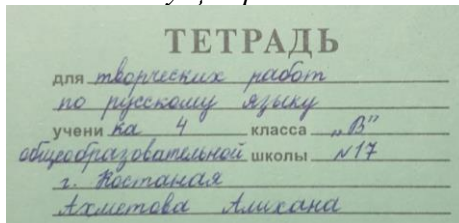 ТЕТРАДЬ
для творческих работ
по русскому языку
учени ка 4 класса „В"
общеобразовательной школы №17
г. Костаная
Ахметова Алихана